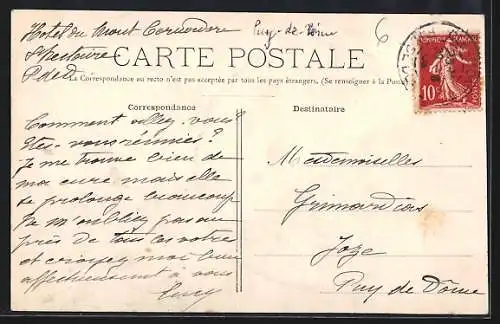 Hotel du Mont Cornadore
St Nectaire
P de D
Puy-de-Dôme
6
CARTE POSTALE
La Correspondance au recto n'est pas acceptée par tous les pays étrangers. (Se renseigner à la Poste
Correspondance
Destinataire
10
Comment allez-vous?
Etes-vous réunies?
Je me trouve bien de
ma cure mais elle
se prolonge beaucoup
Ne m'oubliez pas au
près de tous les votres
et croyez moi bien
affectueusement à vous
Lucy
Mesdemoiselles
Grimardias
Joze
Puy de Dôme